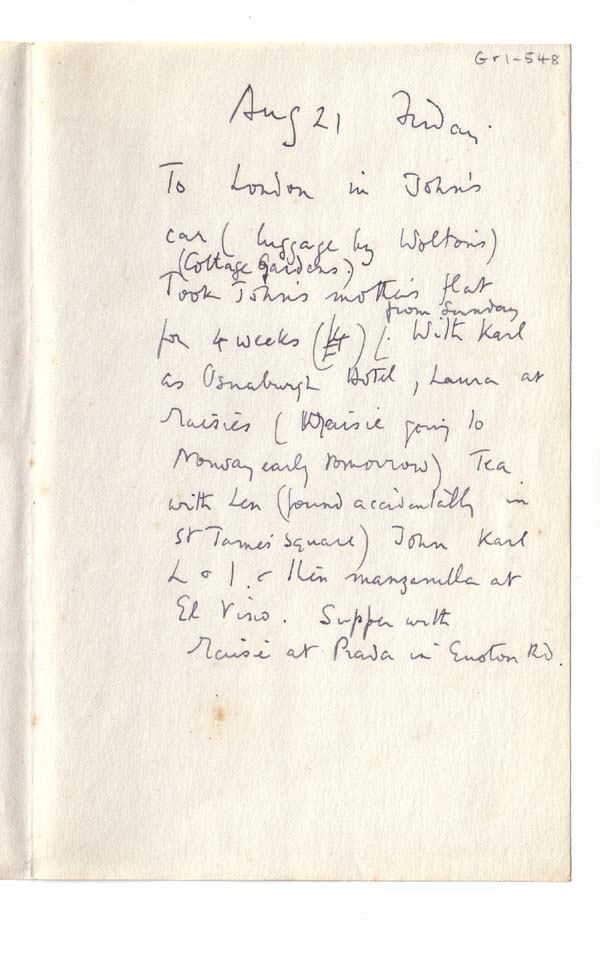 Gr1-548
Aug 21 Friday.
To London in John's
car ( luggage by Wolton's)
(Cottage Gardens)
Took John's mother's flat
from Sunday
for 4 weeks ( ) [. With Karl
as Osnaburgh Hotel, Laura at
Maisie's (Maisie going to
Norway early tomorrow) Tea
with Len (found accidentally in
St James Square) John Karl
L & I. & then manzanilla at
El Vino. Supper with
Maisie at Prada in Euston Rd.